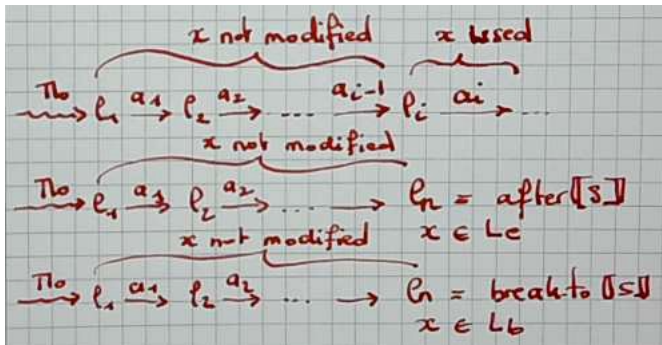 x not modified x used
π₀ ℓ₁ a₁ ℓ₂ a₂ ... aᵢ₋₁ ℓᵢ aᵢ ...
x not modified
π₀ ℓ₁ a₁ ℓ₂ a₂ ... ℓₙ = after⟦S⟧
x ∈ Le
x not modified
π₀ ℓ₁ a₁ ℓ₂ a₂ ... ℓₙ = break-to⟦S⟧
x ∈ Lb